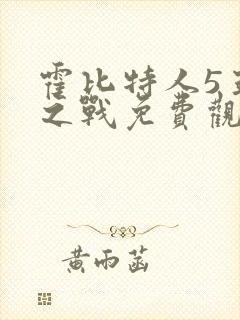 霍比特人5
之戰免費觀
黃雨菡